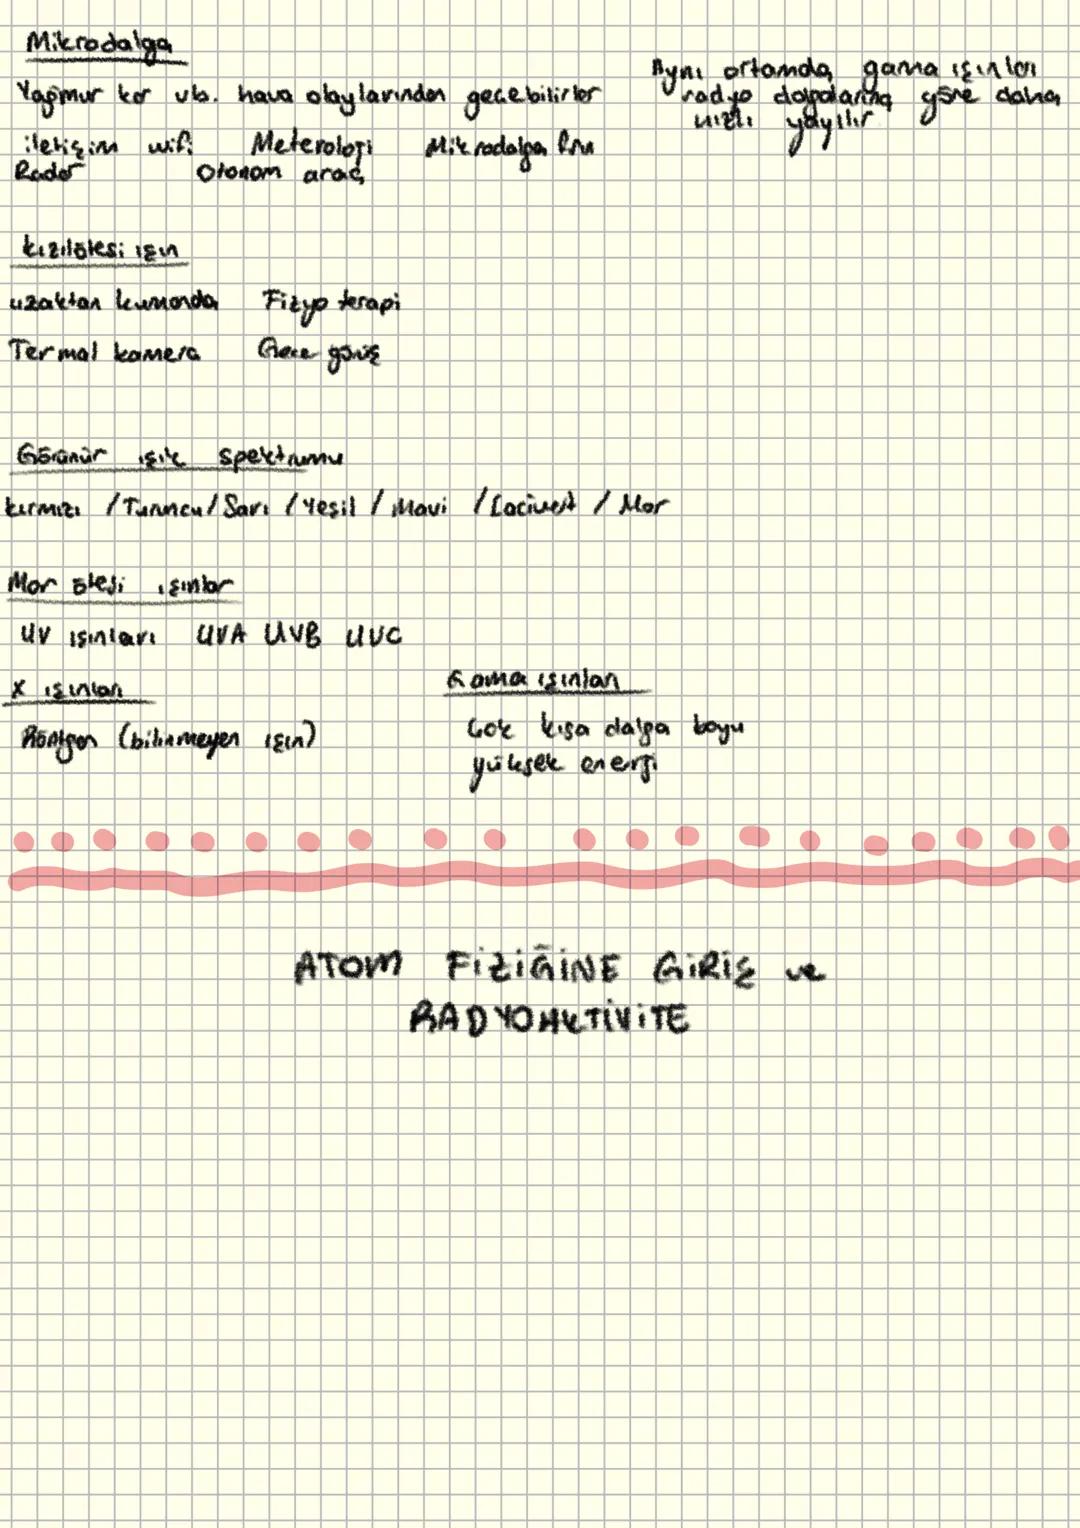 Mikrodalga
Yağmur kar vb. hava olaylarından geçebilirler
iletişim wifi Meteroloji Mikrodalga fırın
Radar Otonom araç
Aynı ortamda gama ışınları
radyo dalgalarına göre daha
hızlı yayılır
kızılötesi ışın
uzaktan kumanda Fizyo terapi
Termal kamera Gece görüş
Görünür ışık spektrumu
kırmızı / Turuncu / Sarı / Yeşil / Mavi / Lacivert / Mor
Mor ötesi ışınlar
UV ışınları UVA UVB UVC
X ışınları
Röntgen (bilinmeyen ışın)
Gama ışınları
Çok kısa dalga boyu
yüksek enerji
ATOM FİZİĞİNE GİRİŞ ve
RADYOAKTİVİTE